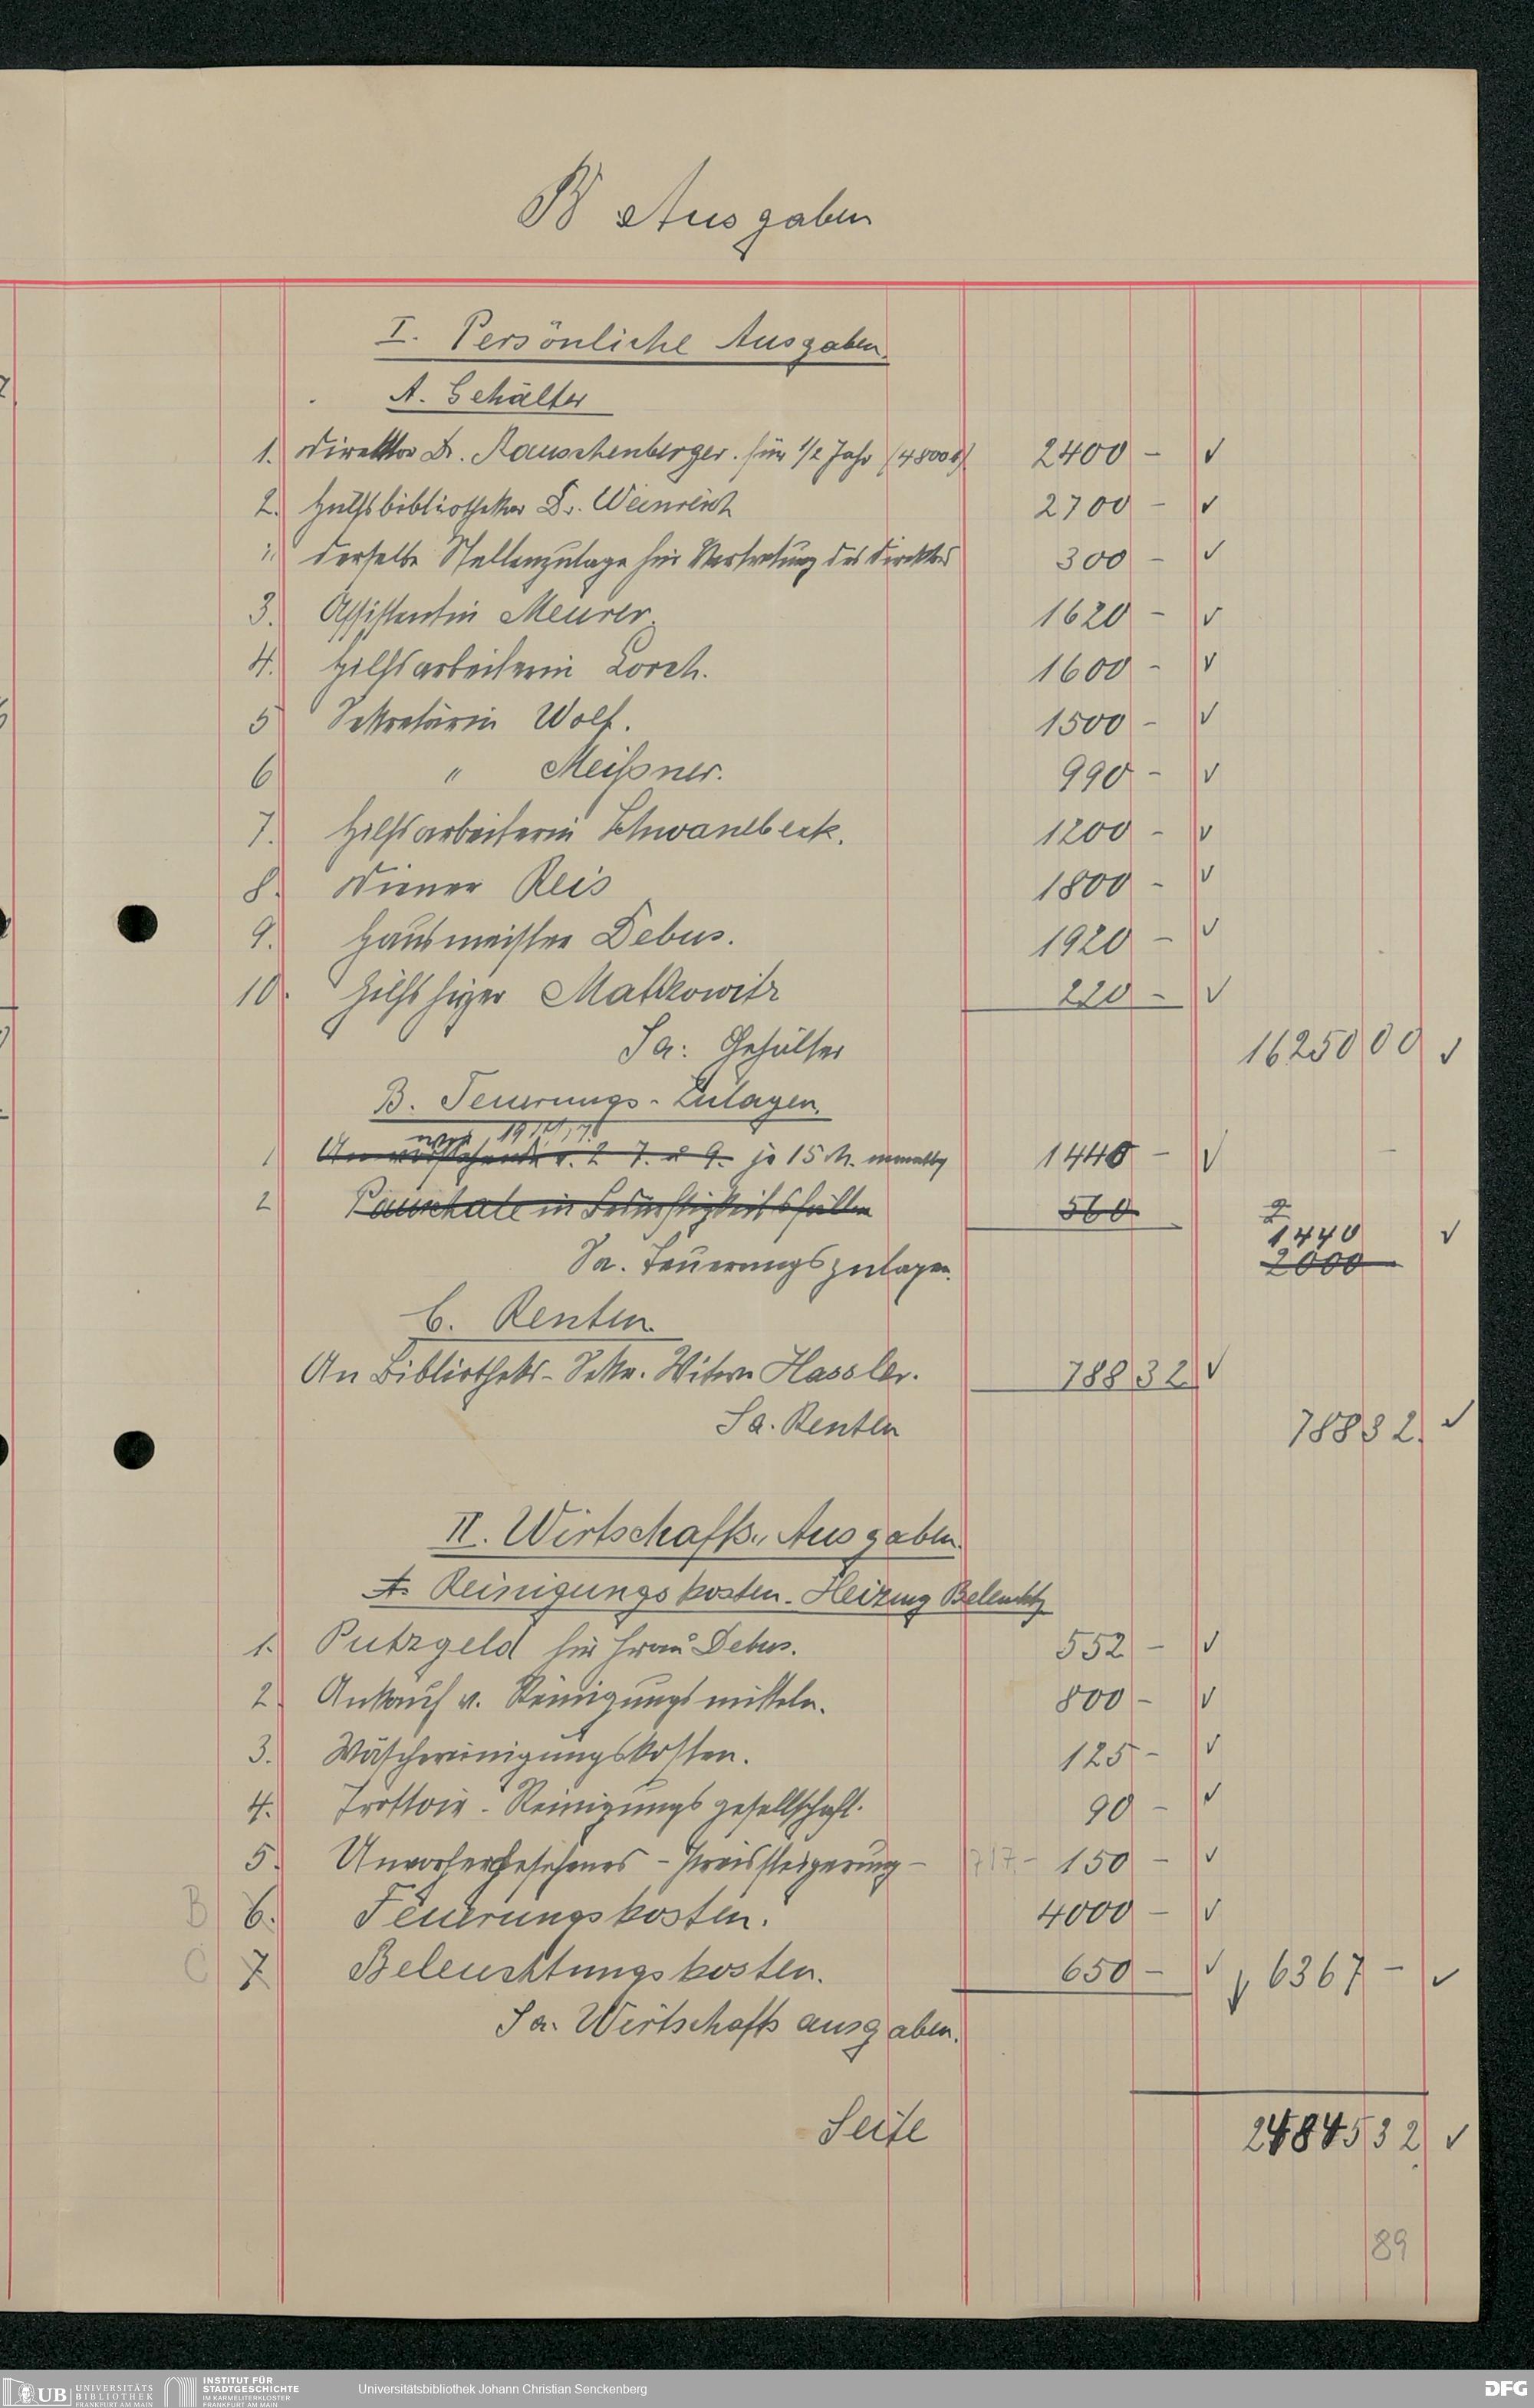 B Ausgaben
I. Persönliche Ausgaben.
A. Gehälter
1. Direktor Dr. Rauschenberger. für 1/2 Jahr (4800 2400 - ✓
2. Hülfsbibliothekar Dr. Weinreich 2700 - ✓
" derselbe Stellenzulage für Vertretung des Direktors 300 - ✓
3. Assistentin Meurer. 1620 - ✓
4. Hilfsarbeiterin Lorch. 1600 - ✓
5 Sekretärin Wolf. 1500 - ✓
6 " Meißner. 990 - ✓
7. Hilfsarbeiterin Schwanebeck. 1200 - ✓
8. Diener Reis 1800 - ✓
9. Hausmeister Debus. 1920 - ✓
10. Hilfsheizer Matkowitz 220 - ✓
Sa: Gehälter 16250 00 ✓
B. Teuerungs-Zulagen.
1 v. 2 7. u 9. je 15 M. 1440 - ✓
2 Pauschale in Bedürftigkeitsfällen 560
1440 ✓
2000
Sa. Teuerungszulagen.
C. Renten.
An Bibliotheks-Sekr. Witwe Hassler. 788 32 ✓
Sa. Renten 788 32. ✓
II. Wirtschafts-Ausgaben.
A. Reinigungskosten. Heizung Beleuchtg
1. Putzgeld für Frau Debus. 552 - ✓
2. Ankauf v. Reinigungsmitteln. 800 - ✓
3. Wäschereinigungskosten. 125 - ✓
4. Trottoir-Reinigungsgesellschaft. 90 - ✓
5. Unvorhergesehenes - Preissteigerung - 717.- 150 - ✓
B 6. Feuerungskosten. 4000 - ✓
C 7 Beleuchtungskosten. 650 - ✓ 6367 - ✓
Sa. Wirtschaftsausgaben.
Seite 24845 32 ✓
89
UB UNIVERSITÄTS
BIBLIOTHEK
FRANKFURT AM MAIN
INSTITUT FÜR
STADTGESCHICHTE
IM KARMELITERKLOSTER
FRANKFURT AM MAIN
Universitätsbibliothek Johann Christian Senckenberg
DFG